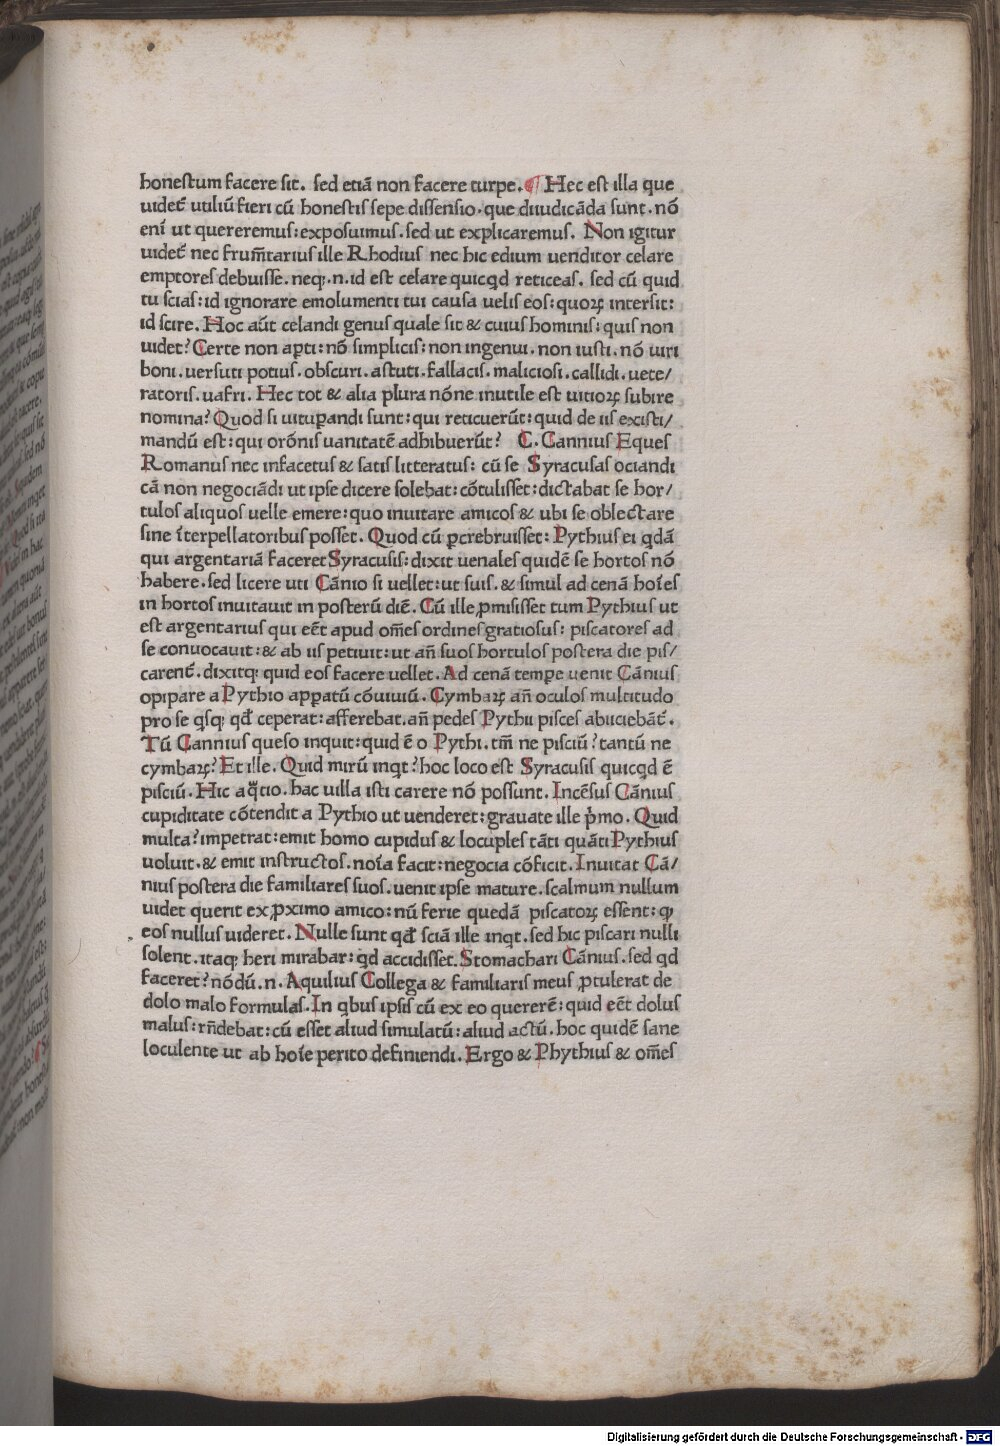 honestum facere sit. sed etiā non facere turpe. ¶ Hec est illa que
uidet᷑ utiliū fieri cū honestis sepe dissensio. que diiudicāda sunt. nō
enī ut quereremus: exposuimus. sed ut explicaremus. Non igitur
uidet᷑ nec frum̄tarius ille Rhodius nec hic edium uenditor celare
emptores debuisse. neqꝫ .n. id est celare quicqd reticeas. sed cū quid
tu scias: id ignorare emolumenti tui causa uelis eos: quoꝝ intersit:
id scire. Hoc aūt celandi genus quale sit & cuius hominis: quis non
uidet? Certe non aꝑti: nō simplicis: non ingenui. non iusti. nō uiri
boni. uersuti potius. obscuri. astuti. fallacis. maliciosi. callidi. uete/
ratoris. uafri. Hec tot & alia plura nōne inutile est uitioꝝ subire
nomina? Quod si uituꝑandi sunt: qui reticuerūt: quid de iis existi/
mandū est: qui orōnis uanitatē adhibuerūt? C. Cannius Eques
Romanus nec infacetus & satis litteratus: cū se Syracusas ociandi
cā non negociādi ut ipse dicere solebat: cōtulisset: dictabat se hor/
tulos aliquos uelle emere: quo inuitare amicos & ubi se oblectare
sine īterpellatoribus posset. Quod cū ꝑcrebruisset: Pythius ei qdā
qui argentariā faceret Syracusis: dixit uenales quidē se hortos nō
habere. sed licere uti Cānio si uellet: ut suis. & simul ad cenā hoīes
in hortos inuitauit in posterū diē. Cū ille ꝓmisisset tum Pythius ut
est argentarius qui eēt apud om̄es ordines gratiosus: piscatores ad
se conuocauit: & ab iis petiuit: ut an̄ suos hortulos postera die pis/
carent᷑. dixitqꝫ quid eos facere uellet. Ad cenā tempe uenit Cānius
opipare a Pythio apparatū cōuiuiū. Cymbaꝝ an̄ oculos multitudo
pro se qsqꝫ qd̄ ceperat: afferebat. an̄ pedes Pythii pisces abiiciebāt᷑.
Tū Cannius queso inquit: quid ē o Pythi. tm̄ ne pisciū? tantū ne
cymbaꝝ? Et ille. Quid mirū inqt? hoc loco est Syracusis quicqd ē
pisciū. Hic aq̄tio. hac uilla isti carere nō possunt. Incēsus Cānius
cupiditate cōtendit a Pythio ut uenderet: grauate ille p̄mo. Quid
multa? impetrat: emit homo cupidus & locuples tāti quāti Pythius
uoluit. & emit instructos. noīa facit: negocia cōficit. Inuitat Cā/
nius postera die familiares suos. uenit ipse mature. scalmum nullum
uidet querit ex ꝓximo amico: nū ferie quedā piscatoꝝ essent: ꝙ
eos nullus uideret. Nulle sunt qd̄ sciā ille inqt. sed hic piscari nulli
solent. itaqꝫ heri mirabar: qd accidisset. Stomachari Cānius. sed qd
faceret? nōdū .n. Aquilius Collega & familiaris meus ꝓtulerat de
dolo malo formulas. In qbus ipsis cū ex eo quererē: quid eēt dolus
malus: rn̄debat: cū esset aliud simulatū: aliud actū. hoc quidē sane
loculente ut ab hoīe perito definiendi. Ergo & Phythius & om̄es
Digitalisierung gefördert durch die Deutsche Forschungsgemeinschaft - DFG